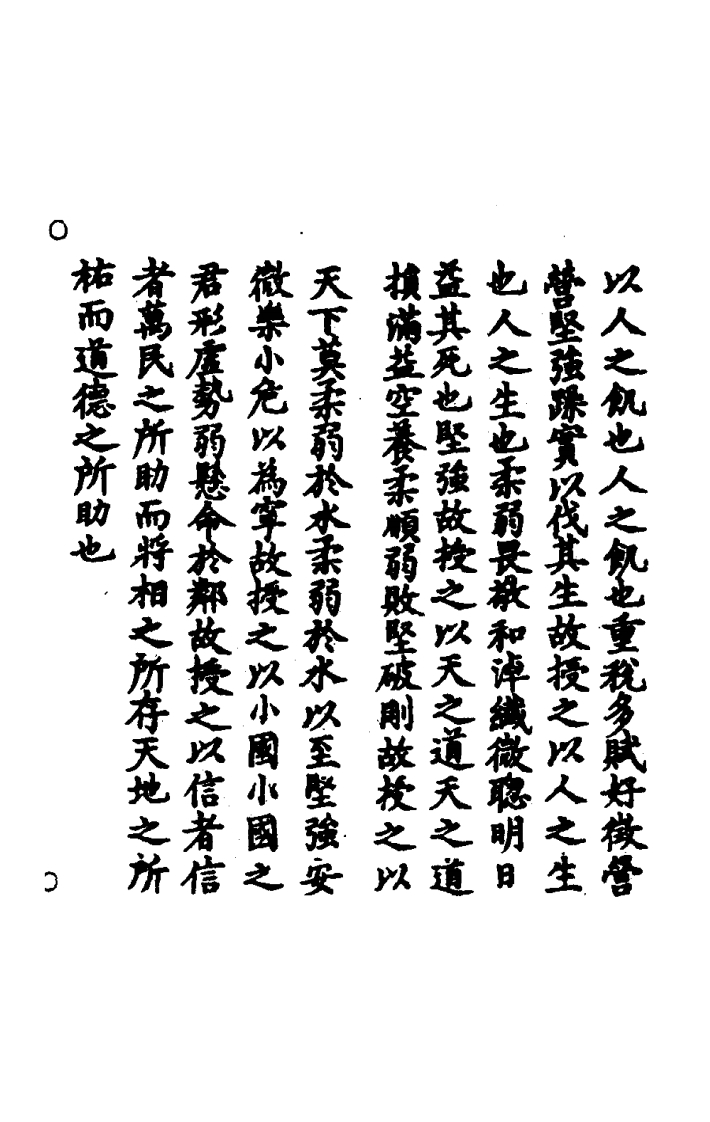 以人之飢也人之飢也重稅多賦好徵營
營堅強躁實以伐其生故授之以人之生
也人之生也柔弱畏敬和淖纖微聰明日
益其死也堅強故授之以天之道天之道
損滿益空養柔順弱敗堅破剛故授之以
天下莫柔弱於水柔弱於水以至堅強安
微樂小危以為寧故授之以小國小國之
君形虛勢弱懸命於鄰故授之以信者信
者萬民之所助而將相之所存天地之所
祐而道德之所助也